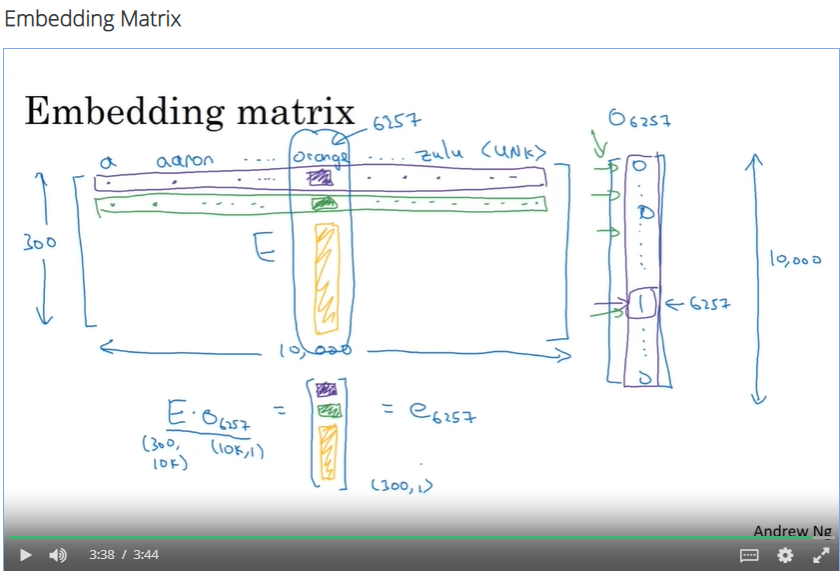 Embedding Matrix
Embedding matrix
6257
O6257
a aaron .... orange .... zulu <UNK>
300
E
0
0
10,000
1 ← 6257
0
10,000
E · O6257 = = e6257
(300, 10K) (10K,1)
(300,1)
Andrew Ng
3:38 / 3:44